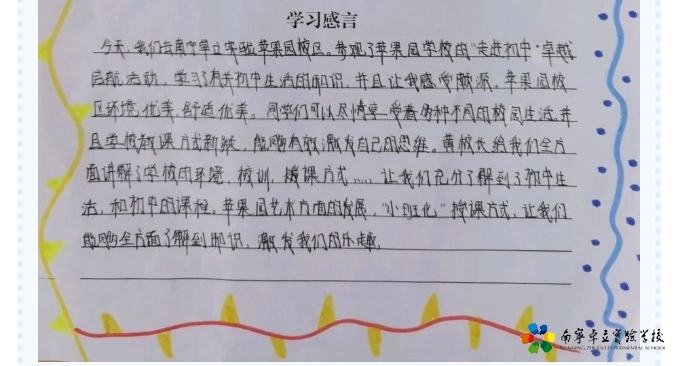 学习感言
今天,我们去南宁卓立实验苹果园校区。参观了苹果园学校的"走进初中·卓越
启航活动,学习了有关初中生活的知识,并且让我感受颇深。苹果园校
区环境优美,舒适优美。同学们可以尽情享受着各种不同的校园生活,并
且学校教课方式新颖,能够有效激发自己的思维。黄校长给我们全方
面讲解了学校的环境、校训、授课方式……让我们充分了解到了初中生
活,和初中的课程。苹果园艺术方面的发展,"小班化"授课方式,让我们
能够全方面了解到知识,激发我们的乐趣。
南宁卓立实验学校
NANNING ZHUOLI EXPERIMENTAL SCHOOL